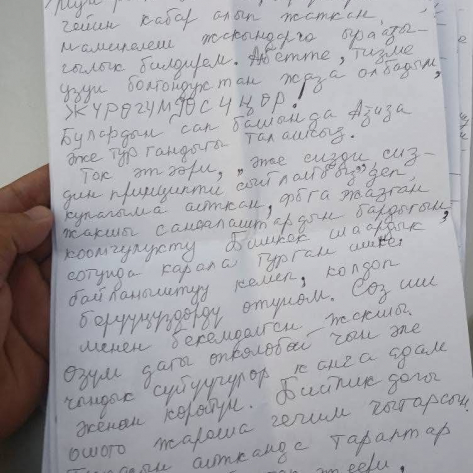 чейин кабар алып жаткан,
мамилелеш жакындарга ыраазы-
чылык билдирем. Албетте, тизме
узун болгондуктан жаза албадым,
ЖҮРӨГҮМДӨСҮҢӨР!
Булардын сап башында Азиза
эже тургандыгы талашсыз.
Ток этээри, "эже сизди, сиз-
дин принципти сыйлайбыз" деп,
кулагыма айткан, фбга жазган
жакшы санаалаштардын бардыгын
коомчулукту Бишкек шаардык
сотунда карала турган ишке
байланыштуу келип, колдоп
берүүңүздөрдү өтүнөм. Сөз иш
менен бекемделген жакшы.
Өзүм дагы өпкөлөбөй чын эле
чындык сүйүүчүлөр канча адам
экенин көрөйүн. Бийлик дагы
ошого жараша чечим чыгарсын
айткандө тараптар